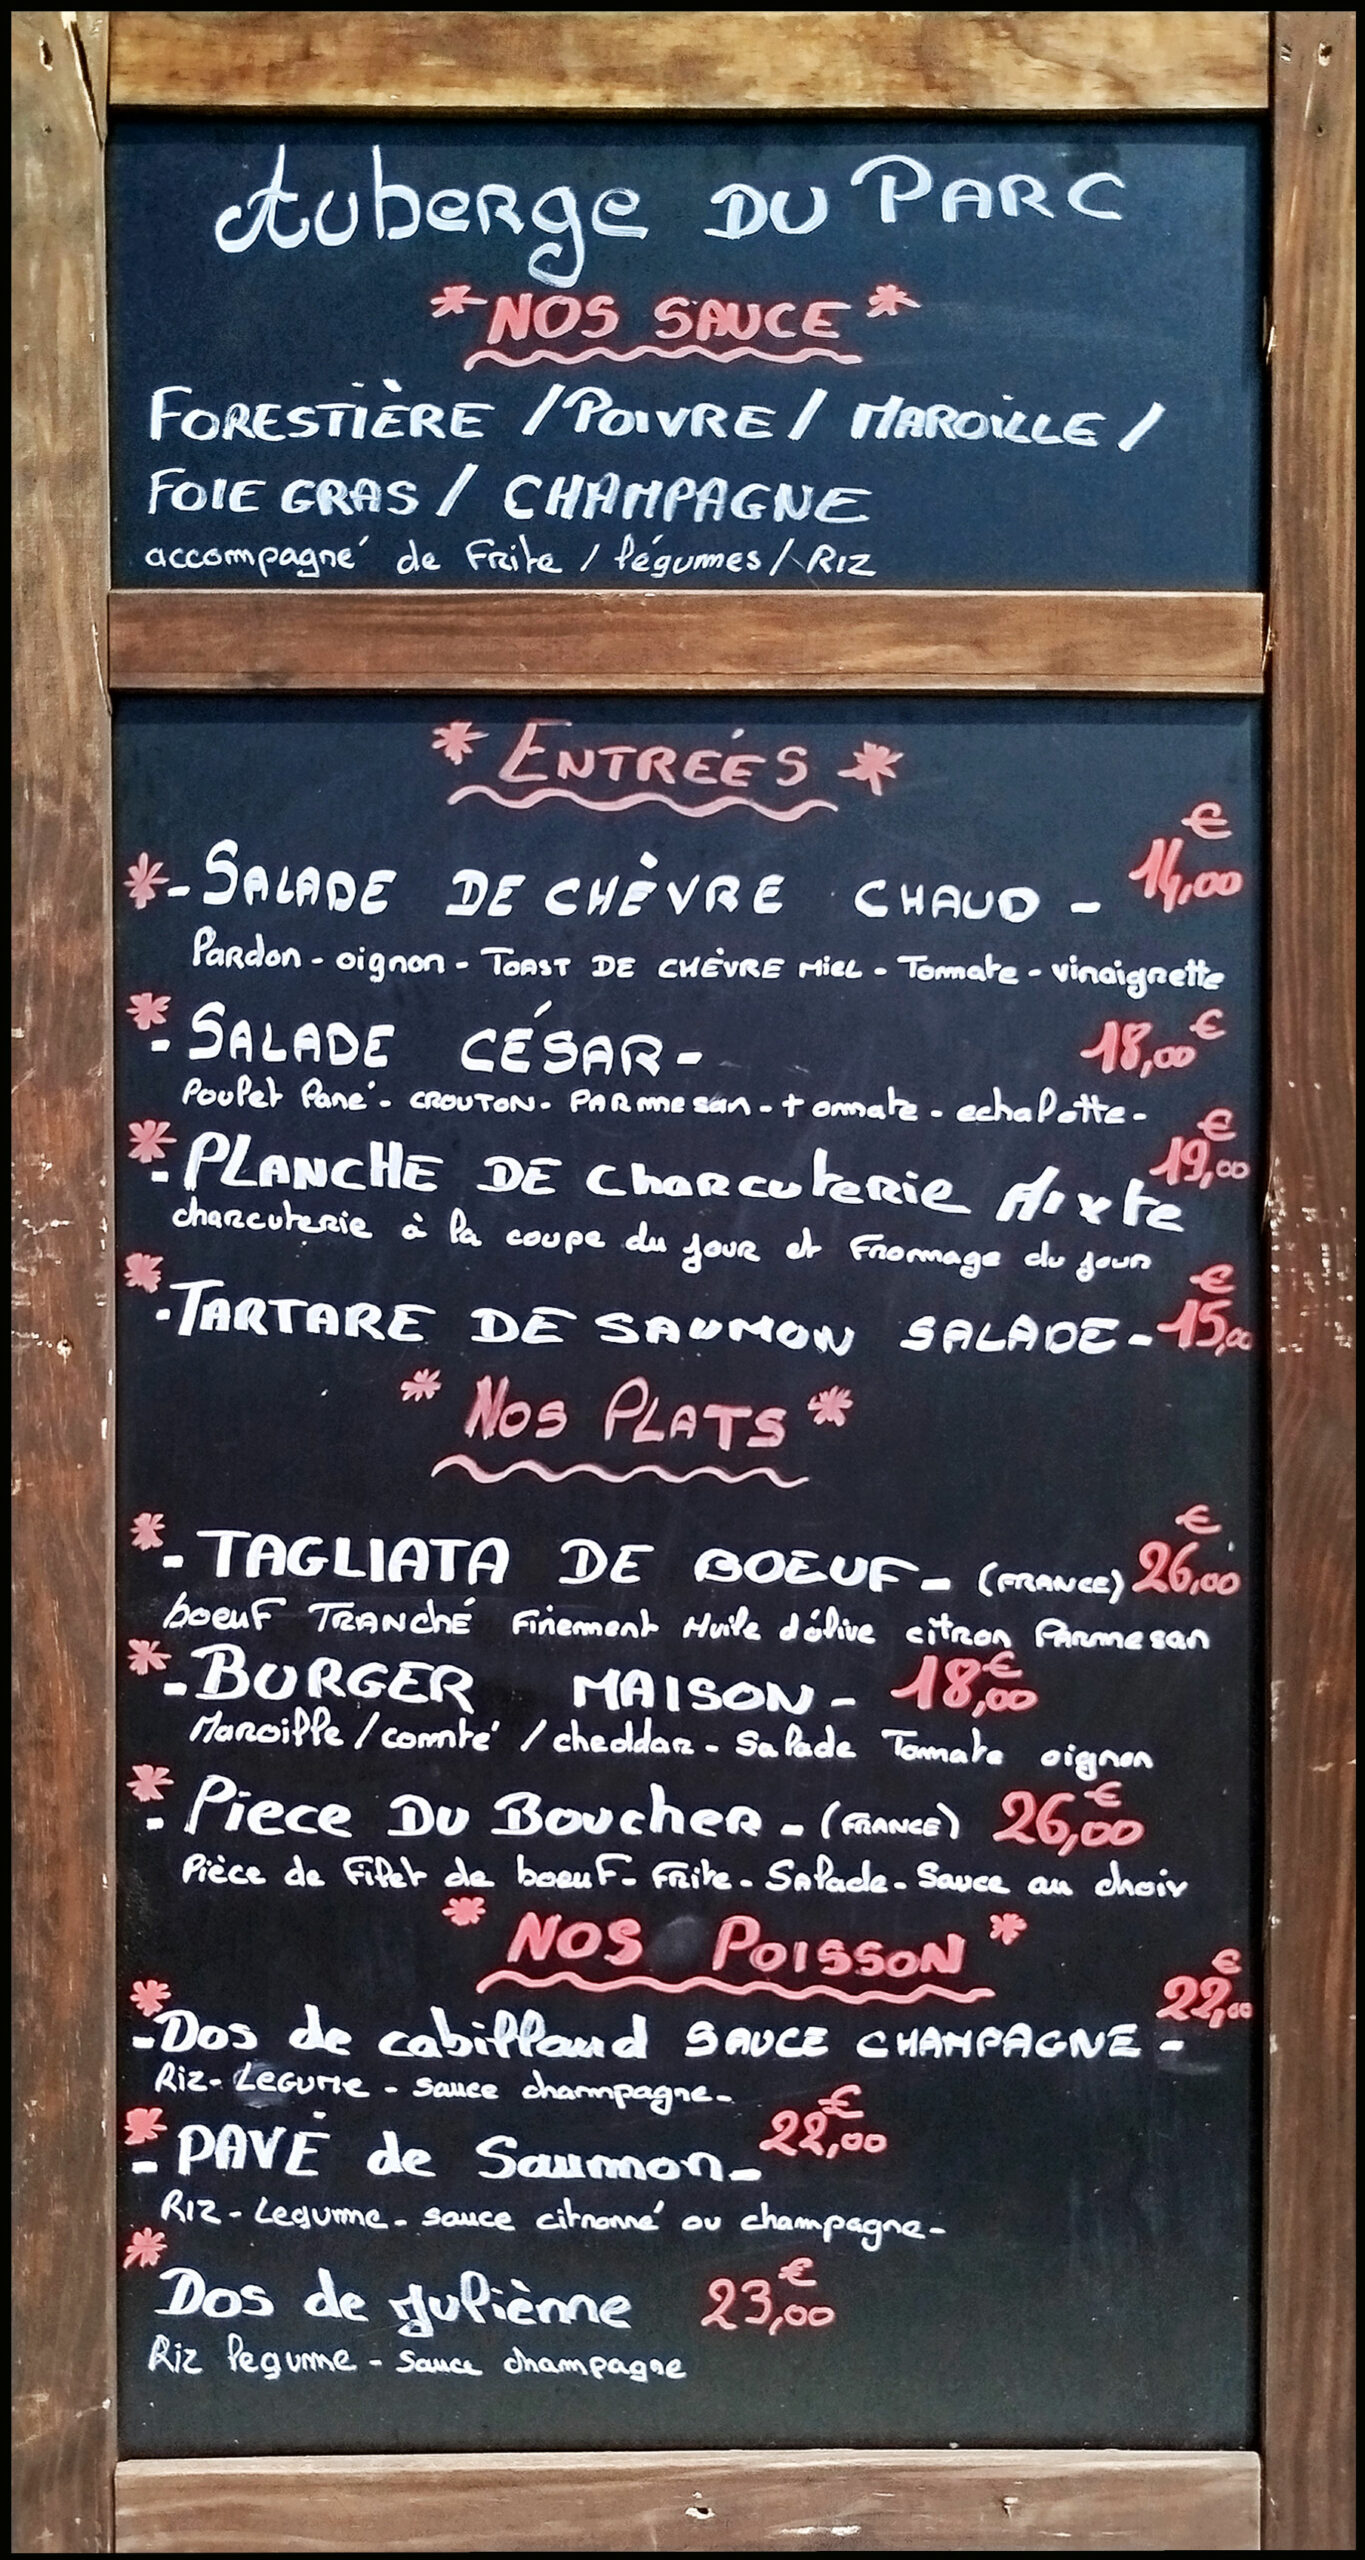 Auberge DU PARC
* NOS SAUCE *
FORESTIÈRE / POIVRE / MAROILLE /
FOIE GRAS / CHAMPAGNE
accompagné de Frite / légumes / RIZ
* ENTREÉS *
*- SALADE DE CHÈVRE CHAUD - 14,00 €
Pardon - oignon - TOAST DE CHÈVRE Miel - Tommate - vinaigrette
*- SALADE CÉSAR - 18,00 €
Poulet Pané - CROUTON - PARmmesan - tommate - echalotte -
*- PLANCHE DE charcuterie Mixte 19,00 €
charcuterie à la coupe du jour et Frommage du jour
*- TARTARE DE SAUMON SALADE - 15,00 €
* NOS PLATS *
*- TAGLIATA DE BOEUF - (FRANCE) 26,00 €
boeuf TRANChÉ Finement Huile d'ólive citron Parmesan
*- BURGER MAISON - 18,00 €
Maroille / comté / cheddar - Salade Tomate oignon
*- Piece Du Boucher - (FRANCE) 26,00 €
Pièce de Filet de boeuf - Frite - Salade - Sauce au choix
* NOS POISSON *
*- Dos de cabillaud SAUCE CHAMPAGNE - 22,00 €
Riz - LEGUME - sauce champagne -
*- PAVÉ de Saumon - 22,00 €
RIZ - Legume - sauce citronné ou champagne -
* Dos de Julienne 23,00 €
Riz legume - sauce champagne